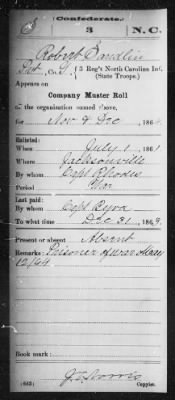 Confederate.
3 N.C.
Robert Sandlin
Pvt, Co. G, 3 Reg't North Carolina Inf.
(State Troops.)
Appears on
Company Muster Roll
of the organization named above,
for Nov & Dec, 186
Enlisted:
When July 1, 1861
Where Jacksonville
By whom Capt Rhodes
Period War
Last paid:
By whom Capt
To what time Dec 31, 1863
Present or absent Absent
Remarks: Prisoner of war May
12/64
Book mark:
(642) Copyist.